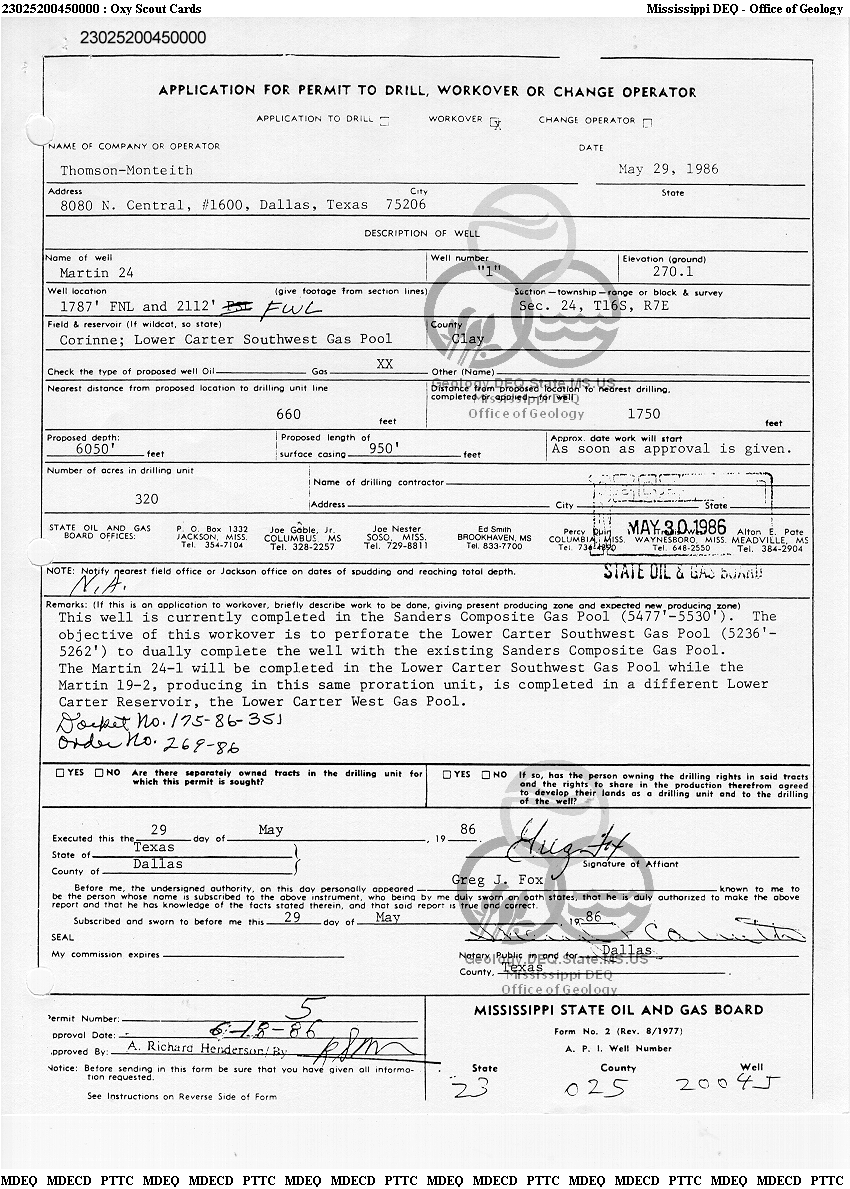 23025200450000 : Oxy Scout Cards Mississippi DEQ - Office of Geology
23025200450000
APPLICATION FOR PERMIT TO DRILL, WORKOVER OR CHANGE OPERATOR
APPLICATION TO DRILL WORKOVER x CHANGE OPERATOR
NAME OF COMPANY OR OPERATOR DATE
Thomson-Monteith May 29, 1986
Address City State
8080 N. Central, #1600, Dallas, Texas 75206
DESCRIPTION OF WELL
Name of well Well number Elevation (ground)
Martin 24 "1" 270.1
Well location (give footage from section lines) Section—township—range or block & survey
1787' FNL and 2112' FSL FWL Sec. 24, T16S, R7E
Field & reservoir (If wildcat, so state) County
Corinne; Lower Carter Southwest Gas Pool Clay
Check the type of proposed well Oil Gas XX Other (Name)
Geology.DEQ.State.MS.US
Mississippi DEQ
Office of Geology
Nearest distance from proposed location to drilling unit line Distance from proposed location to nearest drilling,
completed or applied—for well
660 feet 1750 feet
Proposed depth: Proposed length of Approx. date work will start
6050' feet surface casing 950' feet As soon as approval is given.
Number of acres in drilling unit Name of drilling contractor
320 Address City State
STATE OIL AND GAS P. O. Box 1332 Joe Gable, Jr. Joe Nester Ed Smith Percy Alton E. Pate
BOARD OFFICES: JACKSON, MISS. COLUMBUS, MS SOSO, MISS. BROOKHAVEN, MS COLUMBIA, MISS. WAYNESBORO, MISS. MEADVILLE, MS
Tel. 354-7104 Tel. 328-2257 Tel. 729-8811 Tel. 833-7700 Tel. Tel. 648-2550 Tel. 384-2904
MAY 30 1986
STATE OIL & GAS BOARD
NOTE: Notify nearest field office or Jackson office on dates of spudding and reaching total depth.
N.A.
Remarks: (If this is an application to workover, briefly describe work to be done, giving present producing zone and expected new producing zone)
This well is currently completed in the Sanders Composite Gas Pool (5477'-5530'). The
objective of this workover is to perforate the Lower Carter Southwest Gas Pool (5236'-
5262') to dually complete the well with the existing Sanders Composite Gas Pool.
The Martin 24-1 will be completed in the Lower Carter Southwest Gas Pool while the
Martin 19-2, producing in this same proration unit, is completed in a different Lower
Carter Reservoir, the Lower Carter West Gas Pool.
Docket No. 175-86-351
Order No. 269-86
YES NO Are there separately owned tracts in the drilling unit for
which this permit is sought?
YES NO If so, has the person owning the drilling rights in said tracts
and the rights to share in the production therefrom agreed
to develop their lands as a drilling unit and to the drilling
of the well?
Executed this the 29 day of May, 19 86.
State of Texas
County of Dallas
Signature of Affiant
Before me, the undersigned authority, on this day personally appeared Greg J. Fox known to me to
be the person whose name is subscribed to the above instrument, who being by me duly sworn on oath states, that he is duly authorized to make the above
report and that he has knowledge of the facts stated therein, and that said report is true and correct.
Subscribed and sworn to before me this 29 day of May, 19 86.
SEAL
My commission expires Notary Public in and for Dallas
County, Texas.
Geology.DEQ.State.MS.US
Mississippi DEQ
Office of Geology
Permit Number: 5
pproval Date: 6-18-86
pproved By: A. Richard Henderson/By
Notice: Before sending in this form be sure that you have given all informa-
tion requested.
See Instructions on Reverse Side of Form
MISSISSIPPI STATE OIL AND GAS BOARD
Form No. 2 (Rev. 8/1977)
A. P. I. Well Number
State County Well
23 025 20045
MDEQ MDECD PTTC MDEQ MDECD PTTC MDEQ MDECD PTTC MDEQ MDECD PTTC MDEQ MDECD PTTC MDEQ MDECD PTTC